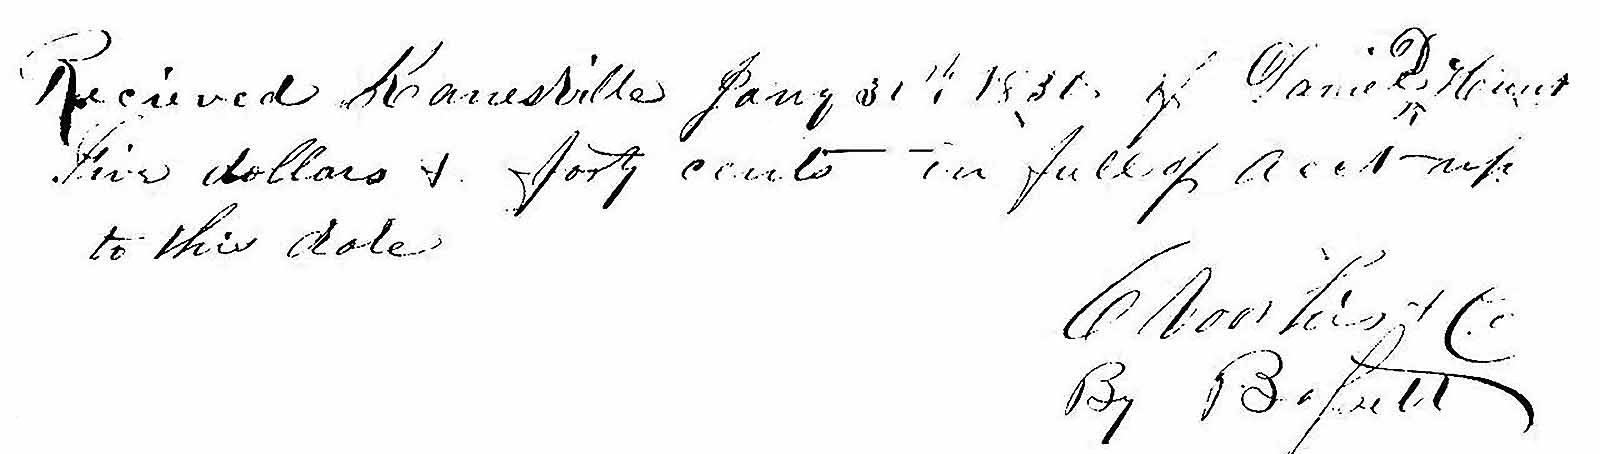 Recieved Kanesville Jany 31th of Daniel D Hunt
Five dollars & forty cents — in full of acct up
to this date
C Voorhis & Co
By Bassett